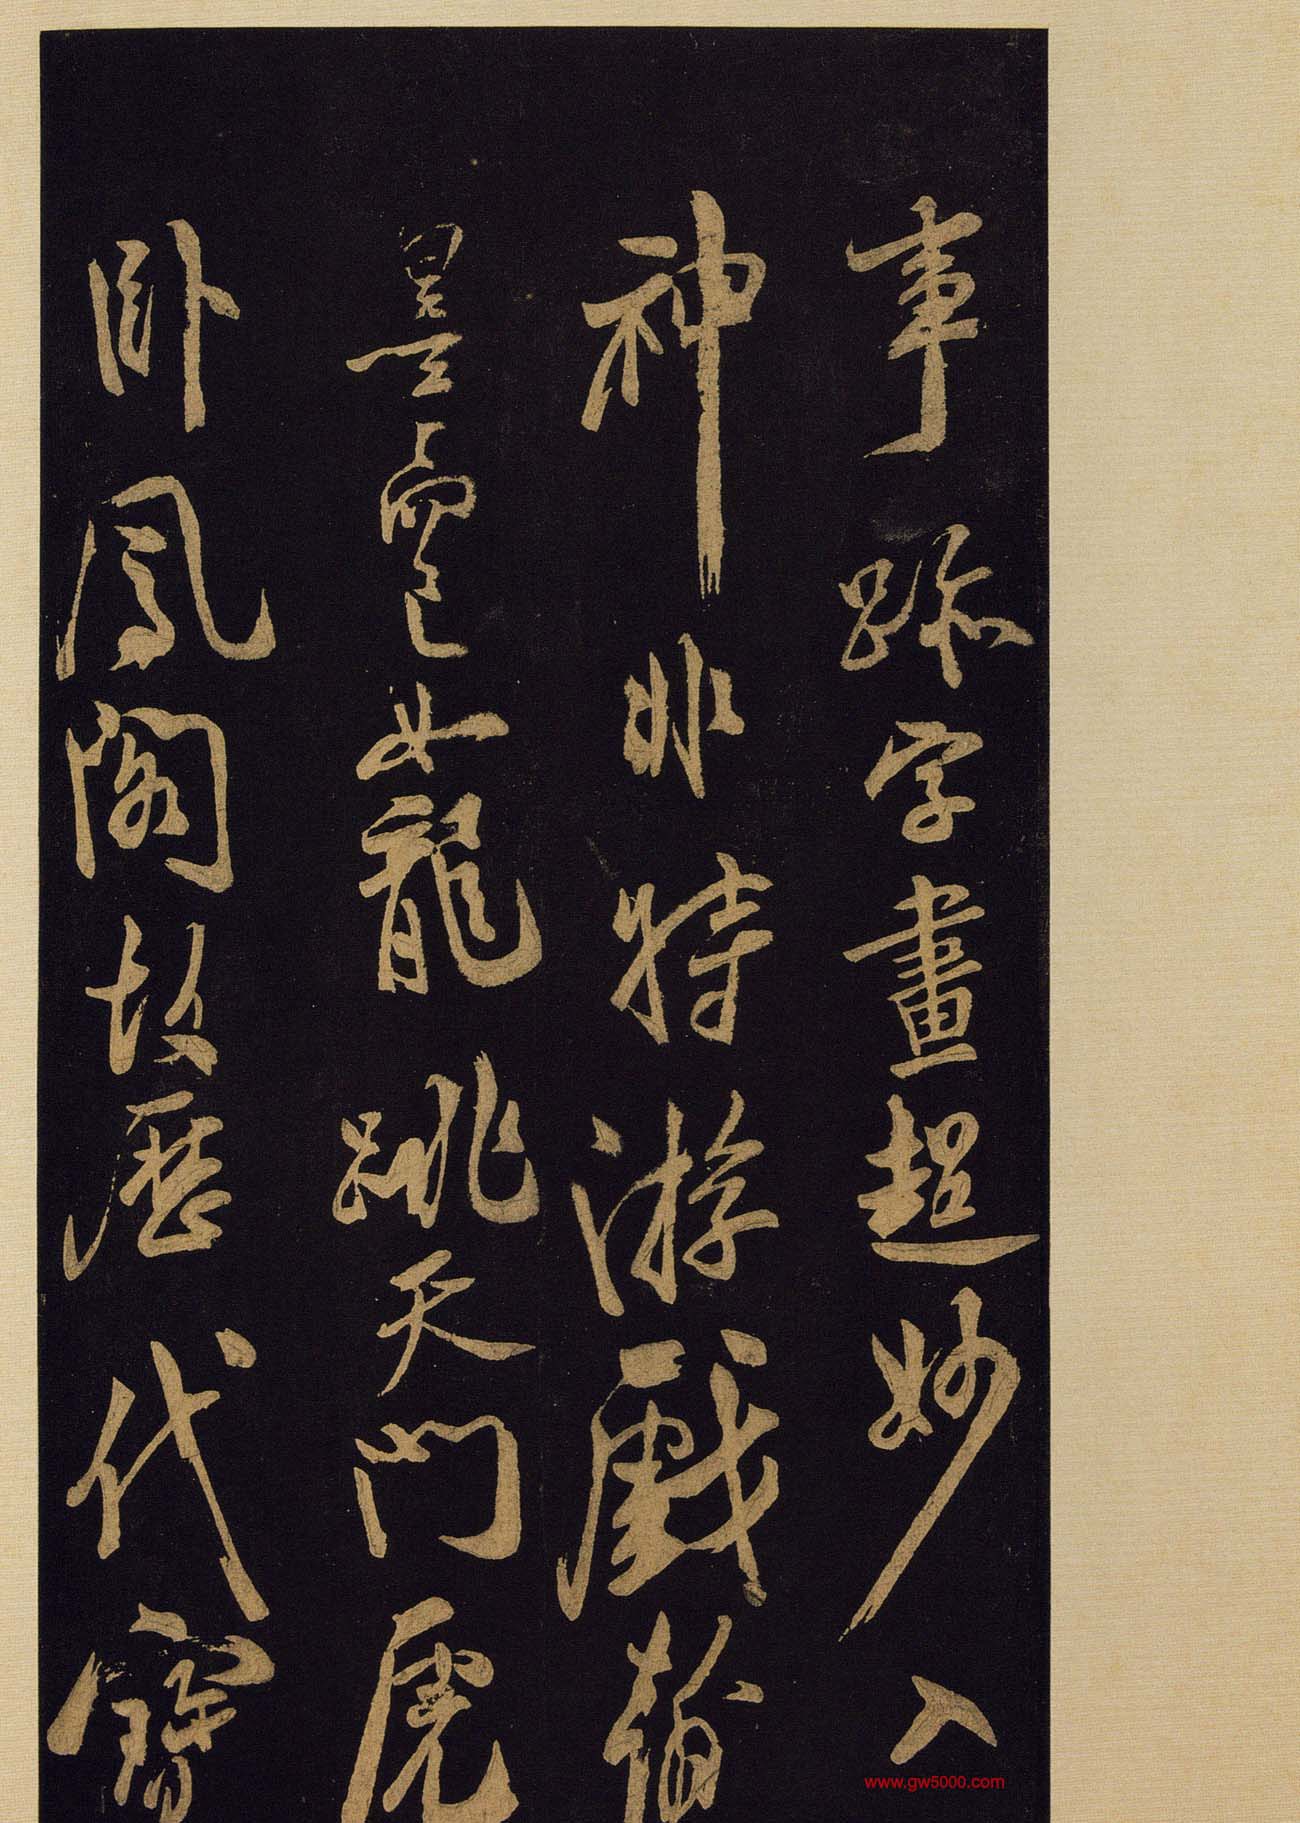 事跡字畫超妙入
神非特游戲翰
墨而已如龍跳天門虎
卧鳳閣故歷代寶
www.gw5000.com